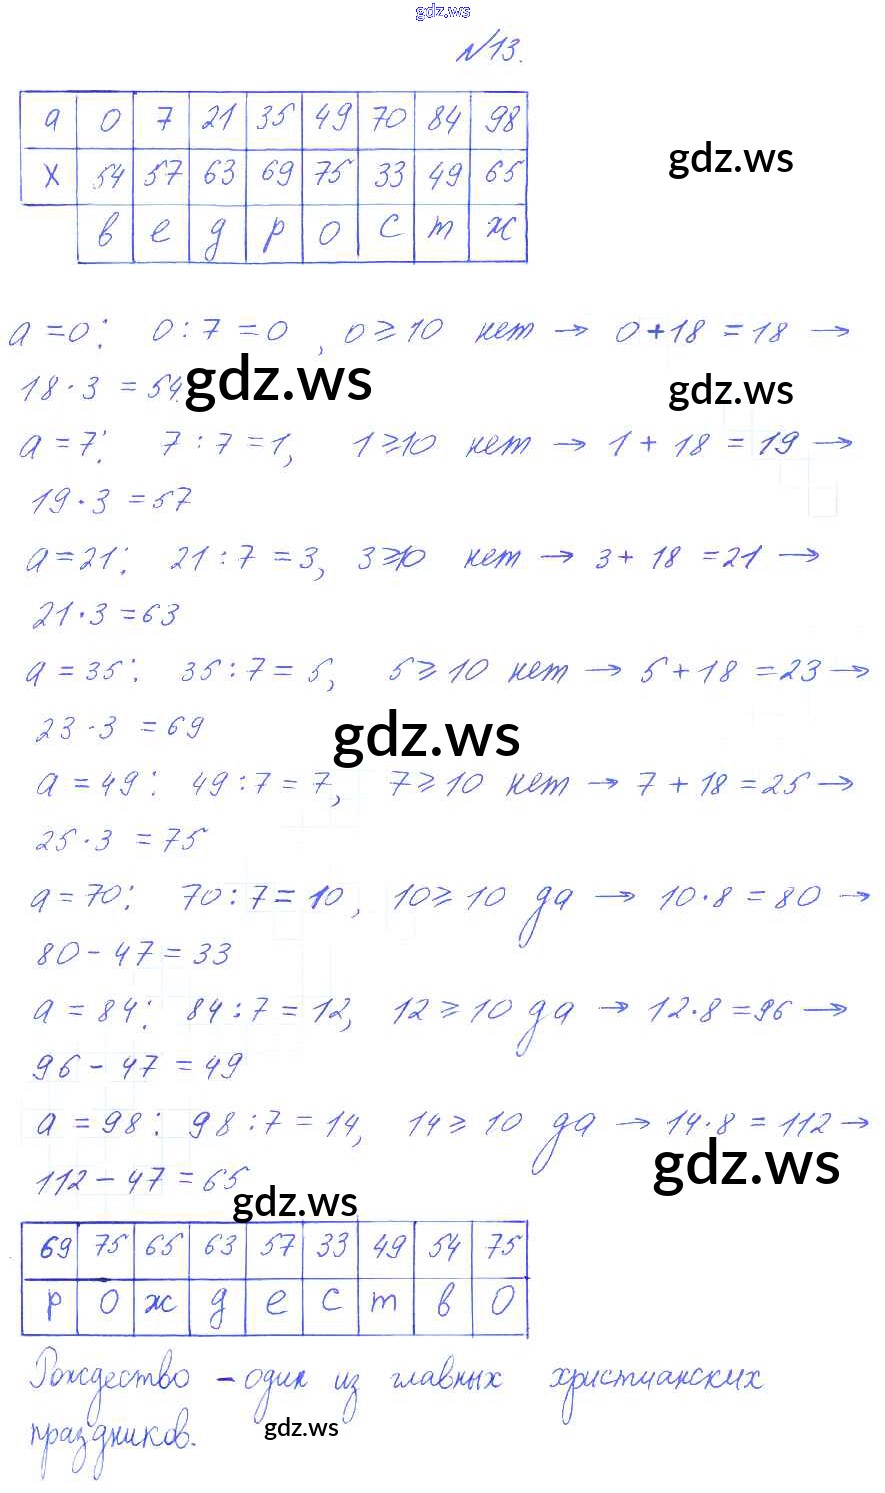 gdz.ws
№13.
a 0 7 21 35 49 70 84 98
x 54 57 63 69 75 33 49 65
gdz.ws
в е д р о с т ж
a = 0: 0 : 7 = 0, 0 ⩾ 10 нет → 0 + 18 = 18 →
18 · 3 = 54.
gdz.ws
gdz.ws
a = 7: 7 : 7 = 1, 1 ⩾ 10 нет → 1 + 18 = 19 →
19 · 3 = 57
a = 21: 21 : 7 = 3, 3 ⩾ 10 нет → 3 + 18 = 21 →
21 · 3 = 63
a = 35: 35 : 7 = 5, 5 ⩾ 10 нет → 5 + 18 = 23 →
23 · 3 = 69
gdz.ws
a = 49: 49 : 7 = 7, 7 ⩾ 10 нет → 7 + 18 = 25 →
25 · 3 = 75
a = 70: 70 : 7 = 10, 10 ⩾ 10 да → 10 · 8 = 80 →
80 - 47 = 33
a = 84: 84 : 7 = 12, 12 ⩾ 10 да → 12 · 8 = 96 →
96 - 47 = 49
a = 98: 98 : 7 = 14, 14 ⩾ 10 да → 14 · 8 = 112 →
112 - 47 = 65
gdz.ws
gdz.ws
69 75 65 63 57 33 49 54 75
р о ж д е с т в о
Рождество - один из главных христианских
праздников.
gdz.ws